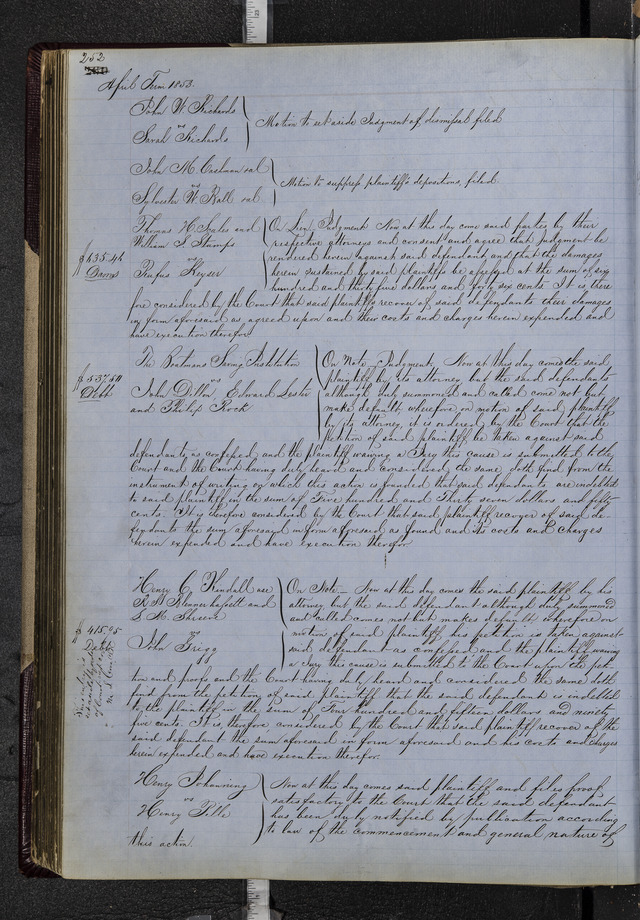 252
April Term 1853.
John W Richards
vs
Sarah Richards
Motion to set aside Judgment of dismissal filed
John M. et al
vs
Sylvester W Ball et al
Motion to suppress plaintiff's depositions, filed.
Thomas H. and
William S Stamps
vs
Rufus Keyser
$635.46
Damgs
On Lien, Judgment Now at this day come said parties by their
respective attorneys and consent and agree that Judgment be
rendered herein against said defendant, and that the damages
herein sustained by said plaintiffs be assessed at the sum of six
hundred and thirty five dollars and forty six cents It is there
fore considered by the Court that said plaintiffs recover of said defendants their damages
in form aforesaid as agreed upon and their costs and charges herein expended and
have execution therefor.
The Boatmans Saving Institution
vs
John Dillon, Edward Lester
and Philip Rock
$537.50
Debt
On Note Judgment. Now at this day comes the said
plaintiff by its attorney but the said defendants
although duly summoned and called come not but
make default, wherefore on motion of said plaintiff
by its attorney, it is ordered by the Court that the
petition of said plaintiff be taken against said
defendants as confessed, and the plaintiff waiving a Jury this cause is submitted to the
Court and the Court having duly heard and considered the same doth find from the
instrument of writing on which this action is founded that said defendants are indebted
to said plaintiff in the sum of Five hundred and Thirty seven dollars and fifty
cents It is therefore considered by the Court that said plaintiff recover of said de-
fendants the sum aforesaid in form aforesaid as found and its costs and charges
herein expended and have execution therefor
Henry C Kindall use
R. B. and
vs
John Trigg
$415.95
Debt
On Note - Now at this day comes the said plaintiff by his
attorney but the said defendant although duly summoned
and called comes not but makes default, wherefore on
motion of said plaintiff, his petition is taken against
said defendant as confessed and the plaintiff waiving
a Jury this cause is submitted to the Court upon the peti-
tion and proofs and the Court having duly heard and considered the same doth
find from the petition of said plaintiff that the said defendant is indebted
to the plaintiff in the sum of Four hundred and fifteen dollars and ninety
five cents. It is therefore considered by the Court that said plaintiff recover of the
said defendant the sum aforesaid in form aforesaid and his costs and charges
herein expended and have execution therefor.
Henry
vs
Henry
Now at this day comes said plaintiff and files proof
satisfactory to the Court that the said defendant
has been duly notified by publication according
to law of the commencement and general nature of
this action.